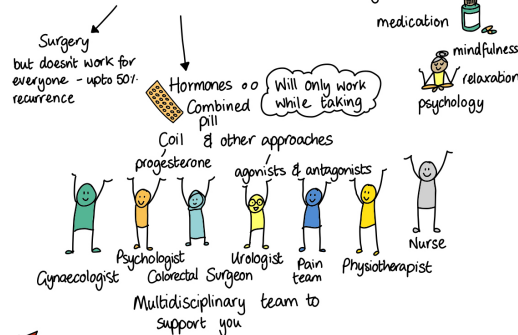 medication
mindfulness
relaxation
psychology
Surgery
but doesn't work for
everyone - upto 50%
recurrence
Hormones
Will only work
while taking
Combined
pill
Coil & other approaches
progesterone
agonists & antagonists
Gynaecologist
Psychologist
Colorectal Surgeon
Urologist
Pain
team
Physiotherapist
Nurse
Multidisciplinary team to
support you